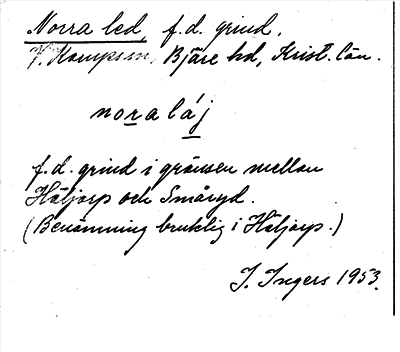 Norra led, f.d. grind,
V. Karups sn, Bjäre hd, Krist. län.
noraláj
f.d. grind i gränsen mellan
Häljarp och Småryd.
(Benämning bruklig i Häljarp.)
I. Ingers 1953.